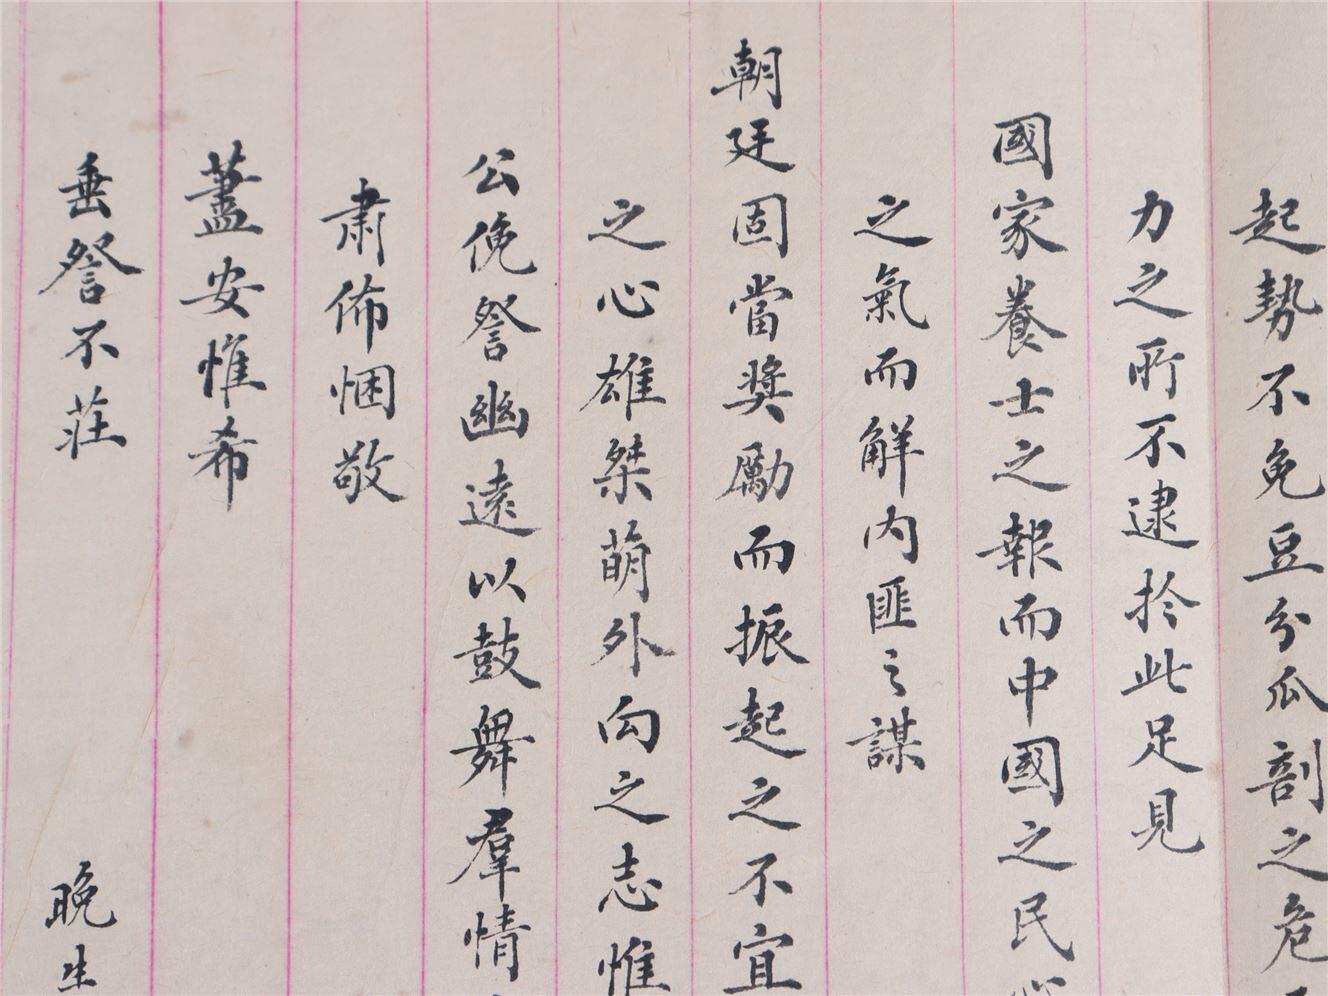 起勢不免豆分瓜剖之危
力之所不逮於此足見
國家養士之報而中國之民心
之氣而解內匪之謀
朝廷固當獎勵而振起之不宜
之心雄桀萌外向之志惟
公俛詧幽遠以鼓舞羣情
肅佈悃敬
藎安惟希
垂詧不莊
晚生